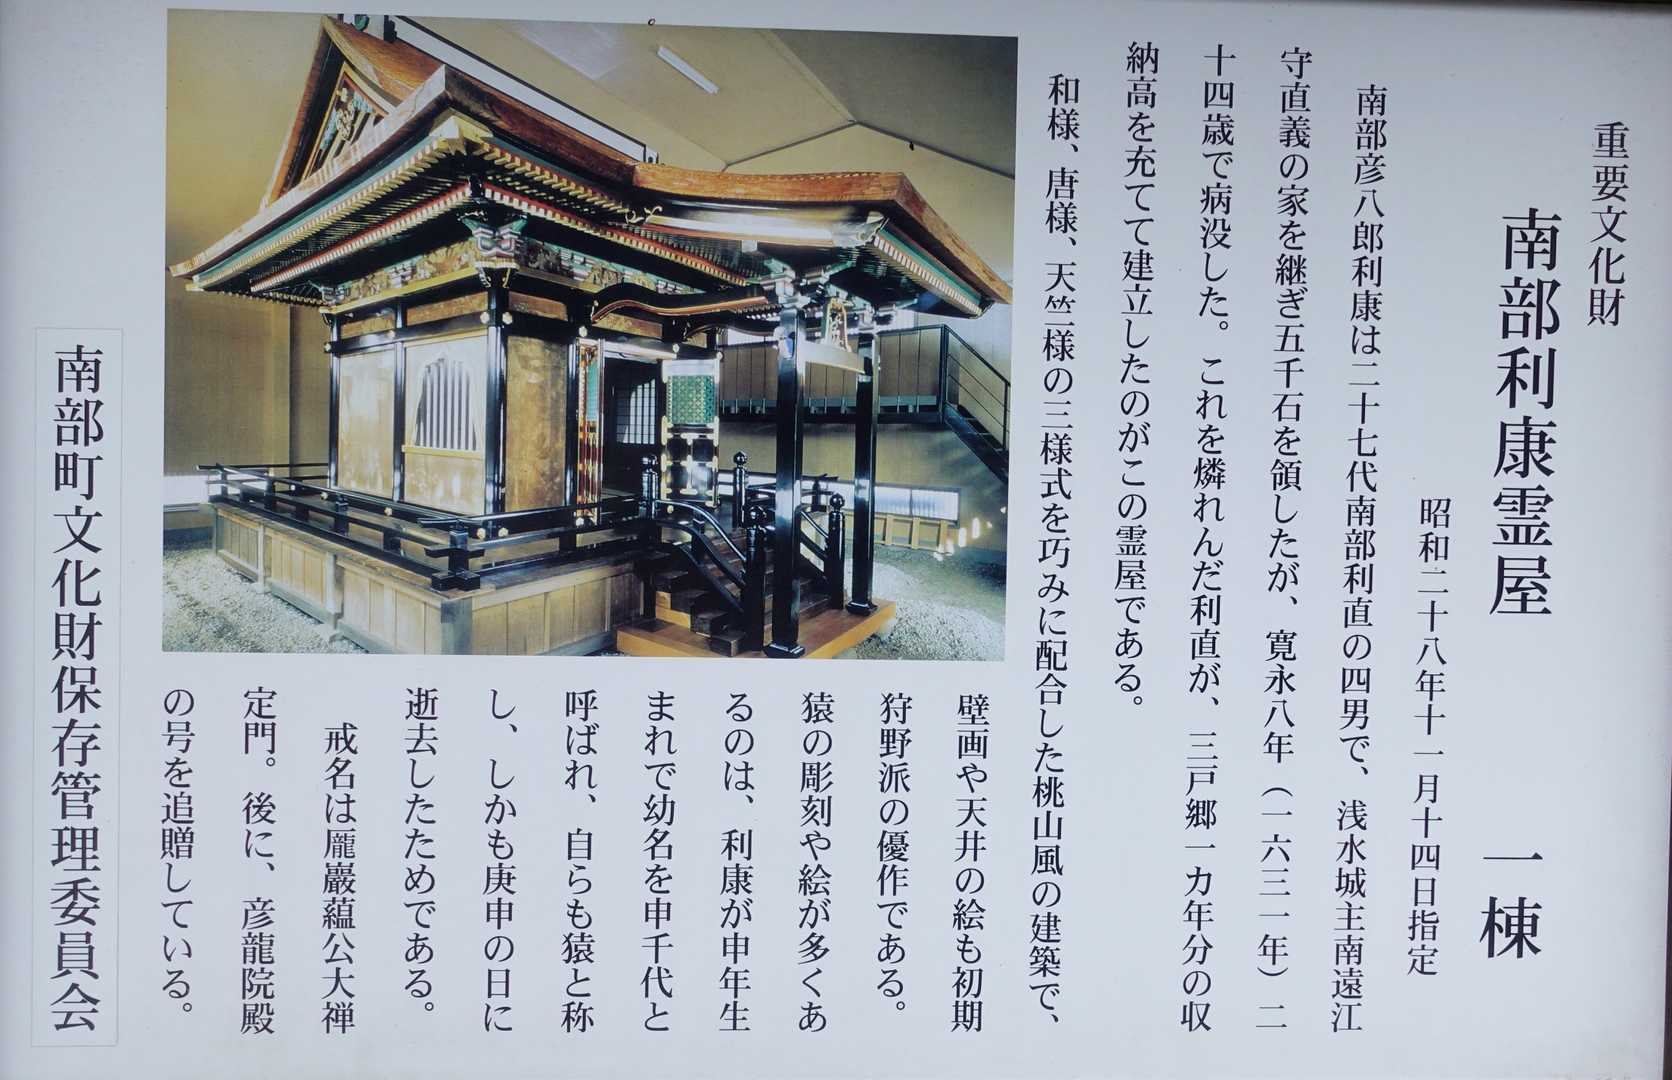 重要文化財
南部利康霊屋　一棟
昭和二十八年十一月十四日指定
南部彦八郎利康は二十七代南部利直の四男で、浅水城主南遠江
守直義の家を継ぎ五千石を領したが、寛永八年（一六三一年）二
十四歳で病没した。これを憐れんだ利直が、三戸郷一カ年分の収
納高を充てて建立したのがこの霊屋である。
和様、唐様、天竺様の三様式を巧みに配合した桃山風の建築で、
壁画や天井の絵も初期
狩野派の優作である。
猿の彫刻や絵が多くあ
るのは、利康が申年生
まれで幼名を申千代と
呼ばれ、自らも猿と称
し、しかも庚申の日に
逝去したためである。
戒名は龐巖蘊公大禅
定門。後に、彦龍院殿
の号を追贈している。
南部町文化財保存管理委員会